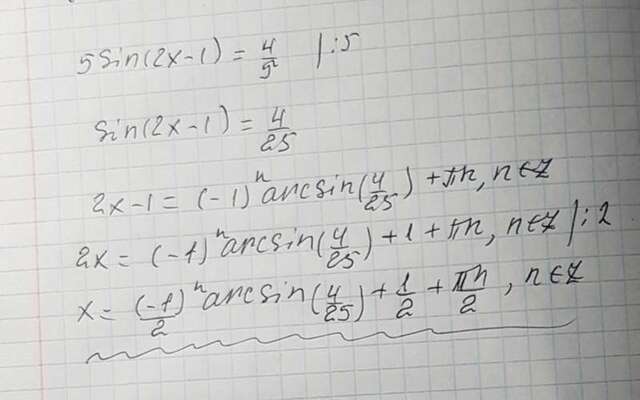 5sin(2x-1) = 4/5 |:5
sin(2x-1) = 4/25
2x-1 = (-1)^n arcsin(4/25) + πn, n∈Z
2x = (-1)^n arcsin(4/25) + 1 + πn, n∈Z |:2
x = (-1)^n/2 arcsin(4/25) + 1/2 + πn/2, n∈Z